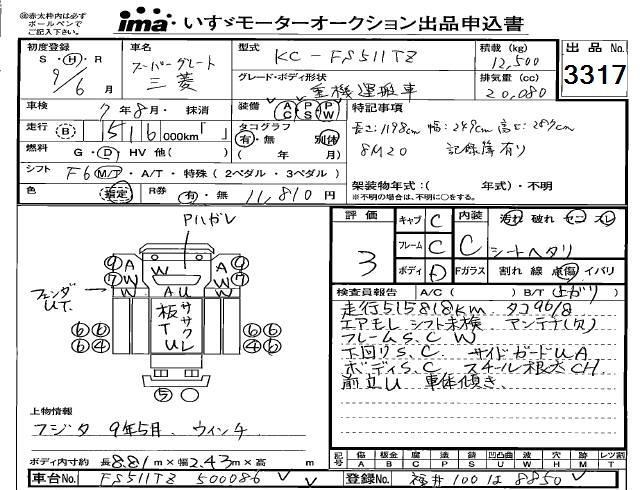 ※赤太枠内は必ずボールペンでご記入下さい。
ima いすゞモーターオークション出品申込書
初度登録 S・H・R 9/6月
車名 スーパーグレート 三菱
型式 KC-FS511TZ
積載 (kg) 12,500
出品 No. 3317
グレード・ボディ形状 重機運搬車
排気量 (cc) 20,080
車検 7年8月・抹消
装備 AC PS PW
特記事項
走行 (B) 516 000km「 」
タコグラフ 有・無 別体 ( 年 月)
長さ:1198cm 幅:249cm 高さ:289cm
8M20 記録簿有り
燃料 G・D・HV 他( )
シフト F6 M/T・A/T・特殊 (2ペダル・3ペダル)
色 指定 R券 有・無 11,810円
架装物年式:( 年式)・不明
※不明の場合は、不明に○をする。
評価 3
キャブ C
フレーム C
ボディ D
内装 C
汚れ 破れ セコ スレ
シートヘタリ
Fガラス 割れ 線 点傷 イバリ
P11ガレ
フェンダ UT
⑨ A W W A ⑨
⑦ W W ⑦
A U
板 T U ササクレ
⑥⑥ ⑥⑥
⑥④ ④⑥
⑤
検査員報告 A/C ( ) B/T (上がり)
走行515818KM タコ96/8
エアモレ シフト未検 アンテナ(欠)
フレームS.C W
下回りS.C サイドガードUA
ボディS.C スチール板大CH
前立U 車体傾き
上物情報
フジタ 9年5月 ウィンチ
ボディ内寸約 長8.81m×幅2.43m×高 m
記号 傷 A 板金 B 腐 C 塗 P 錆 S 凹 凸 曲 U 波 W 穴 H 跡 M レツ割 T
車台No. FS511TZ 500086
登録No. 福井 100 は 8850